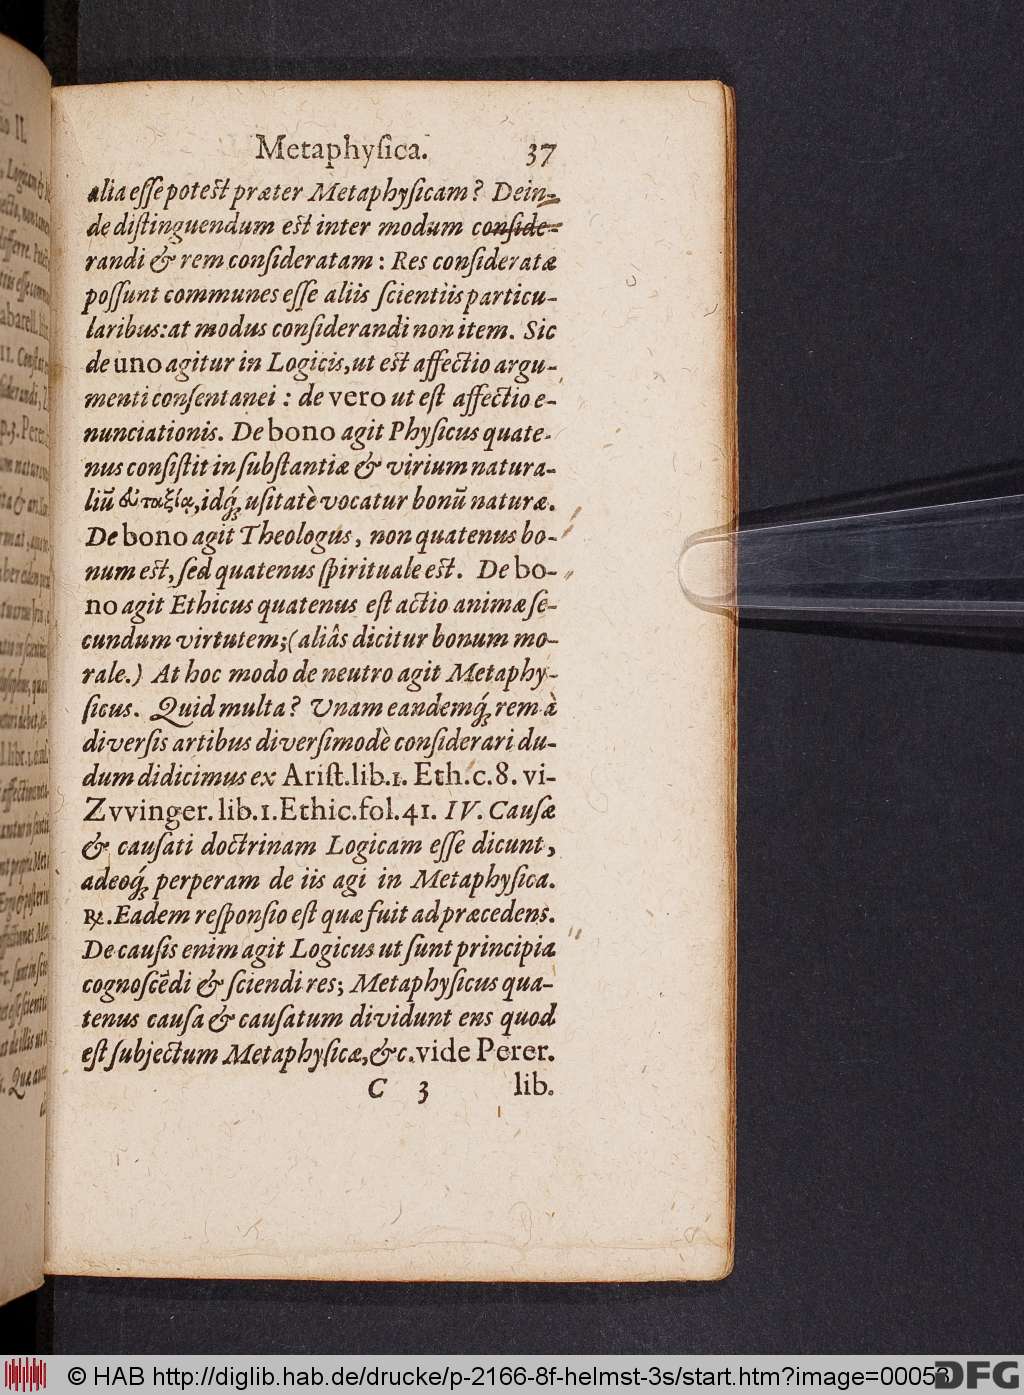 Metaphyſica. 37
alia eſſe potest præter Metaphyſicam? Dein-
de diſtinguendum est inter modum conſide-
randi & rem conſideratam: Res conſideratæ
poſſunt communes eſſe aliis ſcientiis particu-
laribus: at modus conſiderandi non item. Sic
de uno agitur in Logicis, ut est affectio argu-
menti conſentanei: de vero ut eſt affectio e-
nunciationis. De bono agit Phyſicus quate-
nus conſiſtit in ſubſtantiæ & virium natura-
liũ ἐυταξίᾳ, idq́; uſitatè vocatur bonũ naturæ.
De bono agit Theologus, non quatenus bo-
num est, ſed quatenus ſpirituale est. De bo-
no agit Ethicus quatenus eſt actio animæ ſe-
cundum virtutem; (aliâs dicitur bonum mo-
rale.) At hoc modo de neutro agit Metaphy-
ſicus. Quid multa? Unam eandemq́; rem à
diverſis artibus diverſimodè conſiderari du-
dum didicimus ex Ariſt. lib. 1. Eth. c. 8. vi-
Zvvinger. lib. 1. Ethic. fol. 41. IV. Cauſæ
& cauſati doctrinam Logicam eſſe dicunt,
adeoq́; perperam de iis agi in Metaphyſica.
℞. Eadem reſponſio eſt quæ fuit ad præcedens.
De cauſis enim agit Logicus ut ſunt principia
cognoſcẽdi & ſciendi res; Metaphyſicus qua-
tenus cauſa & cauſatum dividunt ens quod
eſt ſubjectum Metaphyſicæ, &c. vide Perer.
C 3 lib.
© HAB http://diglib.hab.de/drucke/p-2166-8f-helmst-3s/start.htm?image=00053
DFG